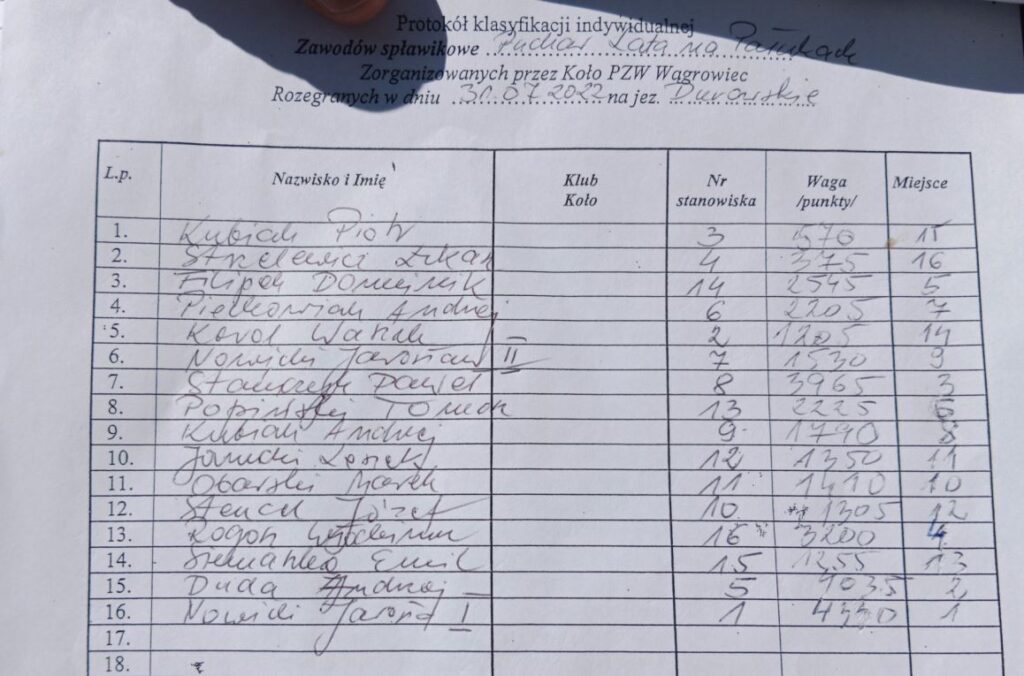 Protokół klasyfikacji indywidualnej
Zawodów spławikowe Puchar Lata na Pałukach
Zorganizowanych przez Koło PZW Wągrowiec
Rozegranych w dniu 31.07.2022 na jez. Durowskie
L.p. Nazwisko i Imię Klub Koło Nr stanowiska Waga /punkty/ Miejsce
1. Kubiak Piotr 3 570 15
2. 4 375 16
3. Filipek Dominik 14 2545 5
4. Pietkowiak Andrzej 6 2205 7
5. Karol 2 1205 14
6. Nowicki Jarosław II 7 1530 9
7. Paweł 8 3965 3
8. Popiński Tomek 13 2225 6
9. Kubiak Andrzej 9 1790 8
10. Janicki Leszek 12 1350 11
11. Obarski Marek 11 1410 10
12. Józef 10 1305 12
13. Rogon 16 3200 4
14. Emil 15 1255 13
15. Duda Andrzej 5 4035 2
16. Nowicki Jarosł I 1 4330 1
17.
18.